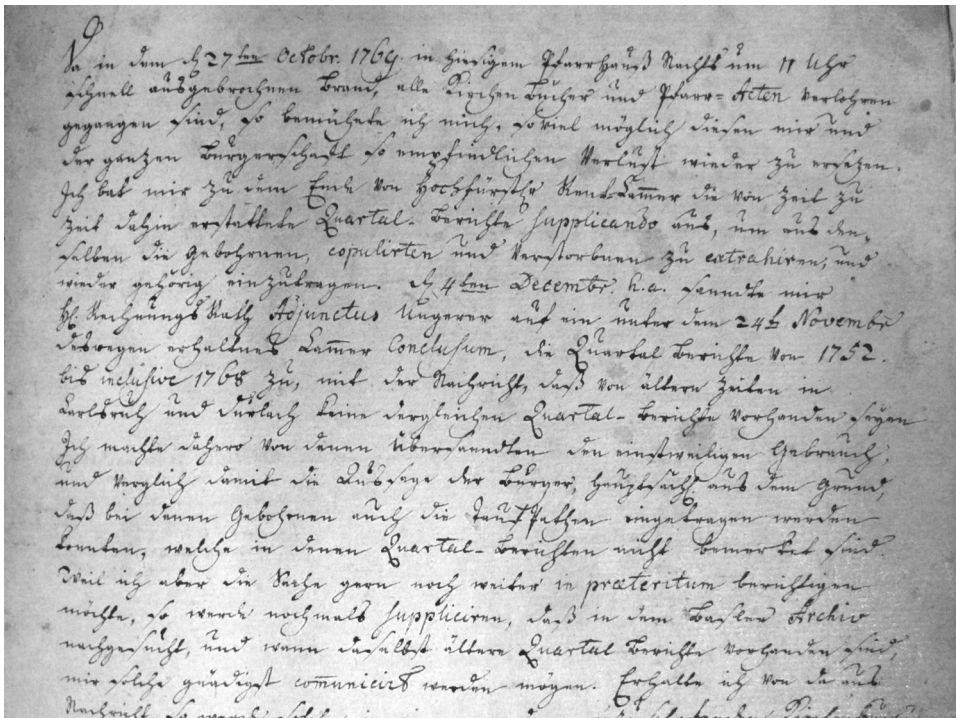 Da in dem d. 27ten Octobr. 1769. in hiesigem Pfarrhauß Nachts um 11 Uhr
schnell ausgebrochnen Brand, alle Kirchen Bücher und Pfarr-Acten verlohren
gegangen sind, so bemühete ich mich, soviel möglich diesen mir und
der ganzen Burgerschaft so empfindlichen Verlust wieder zu ersezen.
Ich bat mir zu dem Ende von Hochfürstlr Rent-Cam̅er die von Zeit zu
Zeit dahin erstattete Quartal-Berichte supplicando aus, um aus den-
selben die Gebohrnen, copulirten und Verstorbnen zu extrahiren, und
wieder gehörig einzutragen. d. 4ten Decembr. h.a. sandte mir
H. Rechnungs Rath Adjunctus Ungerer auf ein unter dem 24t. Novembr
deswegen erhaltnes Cam̅er Conclusum, die Quartal Berichte von 1752.
bis inclusive 1768 zu, mit der Nachricht, daß von ältern Zeiten in
Carlsruh und Durlach keine dergleichen Quartal-Berichte vorhanden seyen
Ich machte dahero von denen übersandten den einstweiligen Gebrauch,
und verglich damit die Aussage der Burger, hauptsächl. aus dem Grund,
daß bei denen Gebohrnen auch die Taufpathen eingetragen werden
konnten, welche in denen Quartal-Berichten nicht bemerket sind.
Weil ich aber die Sache gern noch weiter in præteritum berichtigen
möchte, so werde nochmals suppliciren, daß in dem Basler Archiv
nachgesucht, und wann daselbst ältere Quartal Berichte vorhanden sind,
mir solche gnädigst com̅unicirt werden mögen. Erhalte ich von da aus
Nachricht, so werde